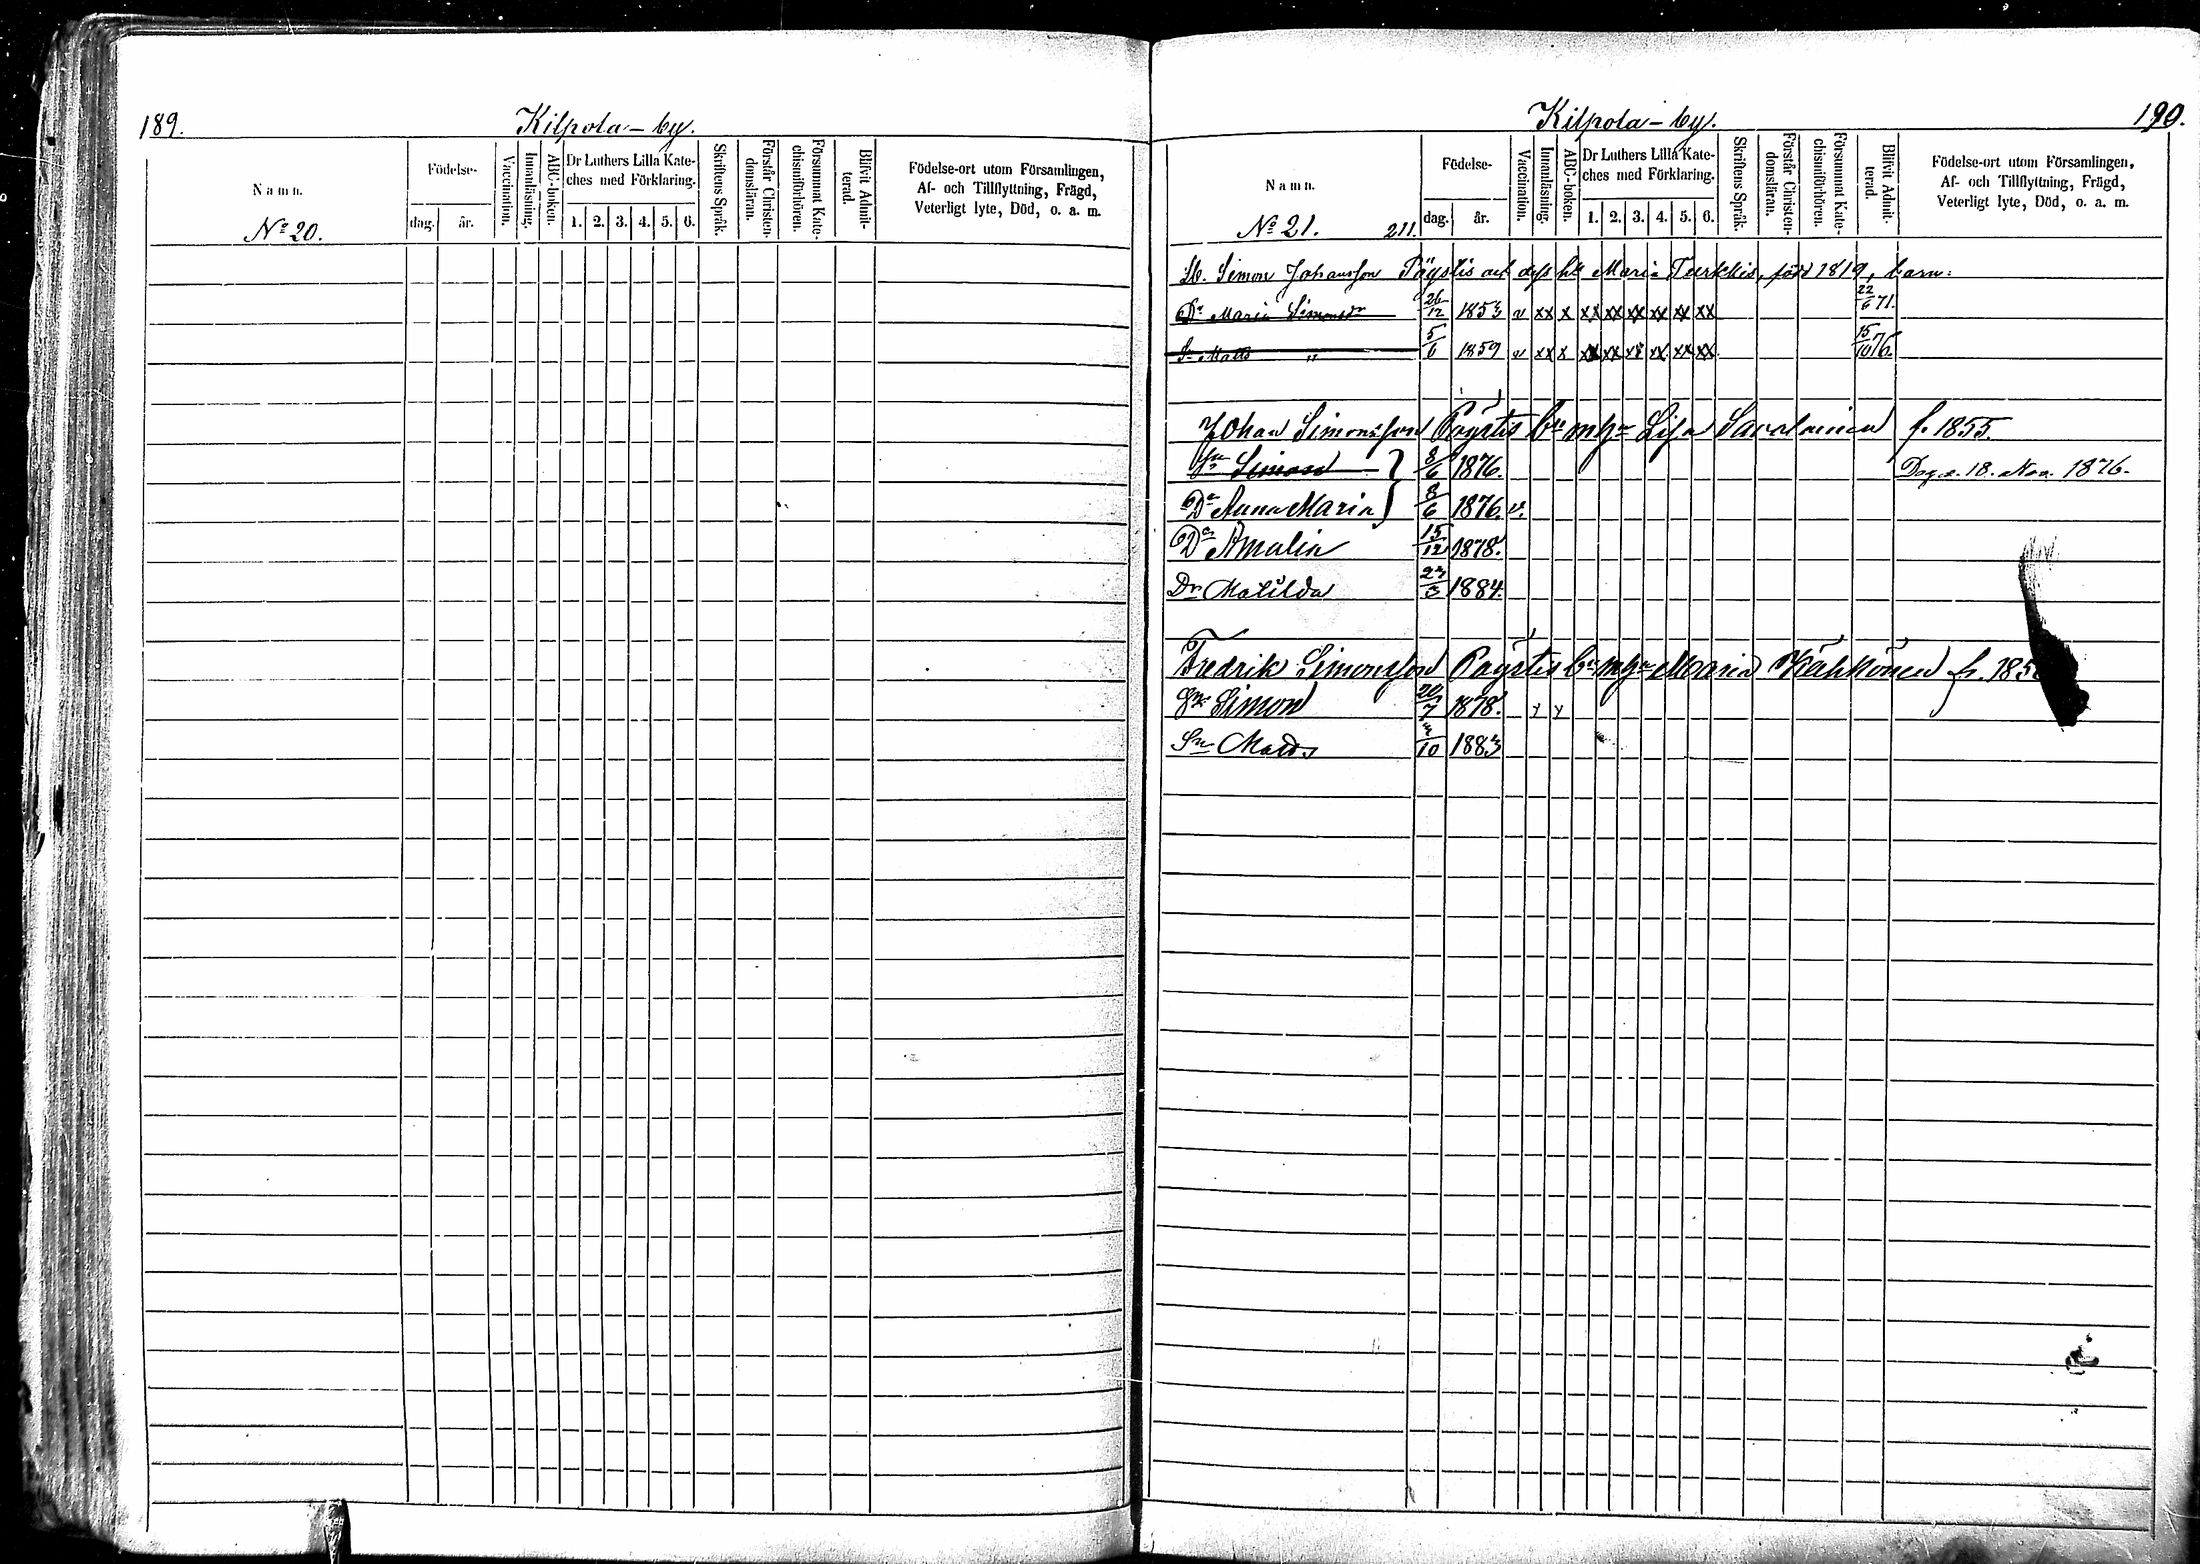 189.
Kilpola-by.
Namn.
Födelse-
dag.
år.
Vaccination.
Innanläsning.
ABC-boken.
Dr Luthers Lilla Kate-
ches med Förklaring.
1. 2. 3. 4. 5. 6.
Skriftens Språk.
Förstår Christen-
domsläran.
Försummat Kate-
chismiförhören.
Blifvit Admit-
terad.
Födelse-ort utom Församlingen,
Af- och Tillflyttning, Frägd,
Veterligt lyte, Död, o. a. m.
No 20.
Kilpola-by.
190.
Namn.
Födelse-
dag.
år.
Vaccination.
Innanläsning.
ABC-boken.
Dr Luthers Lilla Kate-
ches med Förklaring.
1. 2. 3. 4. 5. 6.
Skriftens Språk.
Förstår Christen-
domsläran.
Försummat Kate-
chismiförhören.
Blifvit Admit-
terad.
Födelse-ort utom Församlingen,
Af- och Tillflyttning, Frägd,
Veterligt lyte, Död, o. a. m.
No 21. 211.
Simon Johansson Päystis och dess Maria Turkkis, född 1819, barn:
Dr Maria Simonsdr 26/12 1853 v xx x xx xx xx xx xx xx 22/6 71.
Sn Matts " 5/6 1859 v xx x xx xx xx xx xx xx 15/10 76.
Johan Simonsson Päystis bn m hu Lisa Savolainen f. 1855.
Sn Simon 8/6 1876. 18. Nov. 1876.
Dr Anna Maria 8/6 1876. v.
Dr Amalia 15/12 1878.
Dr Matilda 27/3 1884.
Fredrik Simonsson Päystis bn m hu Maria Käkkönen f. 185
Sn Simon 20/7 1878. y y
Sn Matts /10 1883